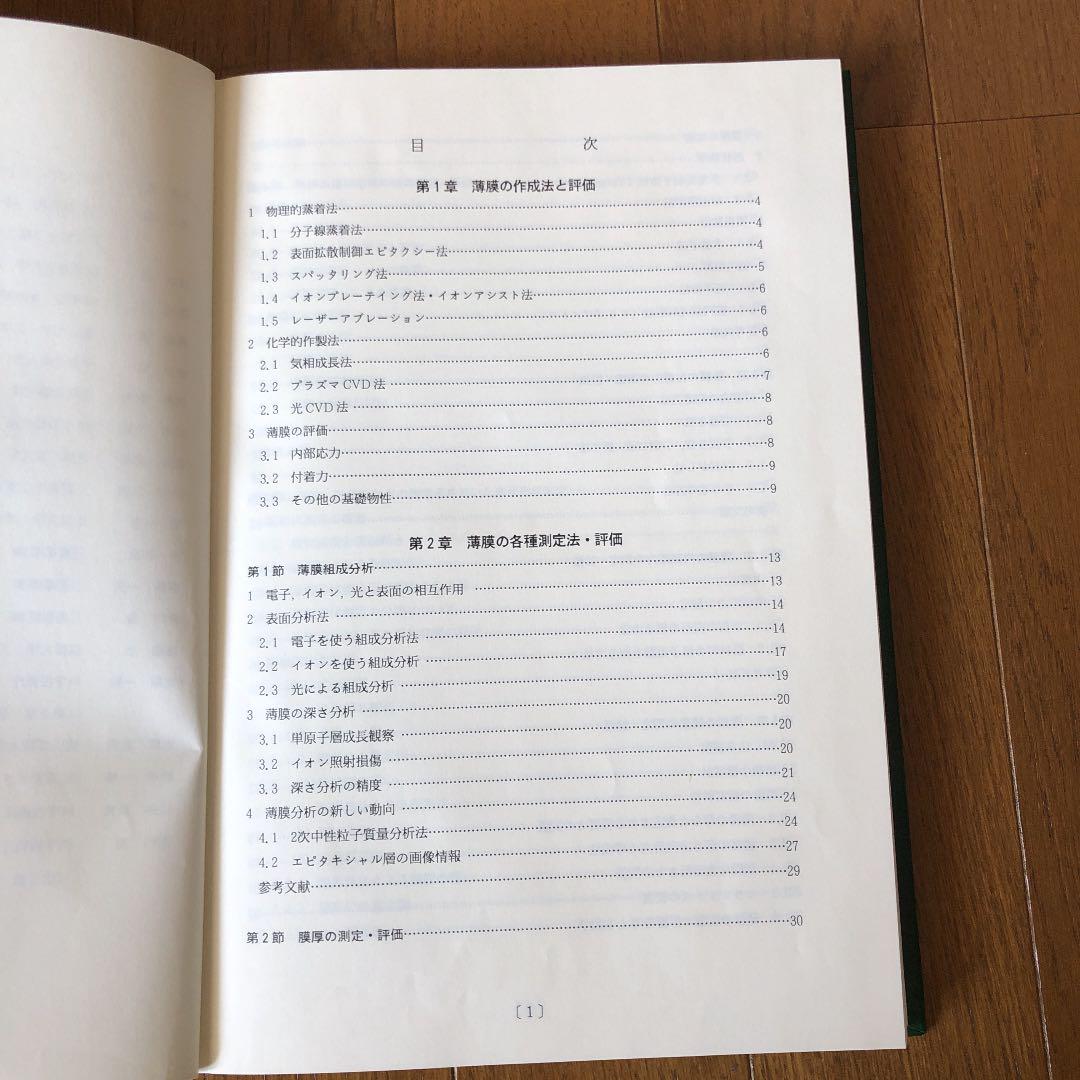 目 次
第1章 薄膜の作成法と評価
1 物理的蒸着法……………………4
1.1 分子線蒸着法……………………4
1.2 表面拡散制御エピタクシー法……………………4
1.3 スパッタリング法……………………5
1.4 イオンプレーテイング法・イオンアシスト法……………………6
1.5 レーザーアブレーション……………………6
2 化学的作製法……………………6
2.1 気相成長法……………………6
2.2 プラズマCVD法……………………7
2.3 光CVD法……………………8
3 薄膜の評価……………………8
3.1 内部応力……………………8
3.2 付着力……………………9
3.3 その他の基礎物性……………………9
第2章 薄膜の各種測定法・評価
第1節 薄膜組成分析……………………13
1 電子, イオン, 光と表面の相互作用……………………13
2 表面分析法……………………14
2.1 電子を使う組成分析法……………………14
2.2 イオンを使う組成分析……………………17
2.3 光による組成分析……………………19
3 薄膜の深さ分析……………………20
3.1 単原子層成長観察……………………20
3.2 イオン照射損傷……………………20
3.3 深さ分析の精度……………………21
4 薄膜分析の新しい動向……………………24
4.1 2次中性粒子質量分析法……………………24
4.2 エピタキシャル層の画像情報……………………27
参考文献……………………29
第2節 膜厚の測定・評価……………………30
〔1〕